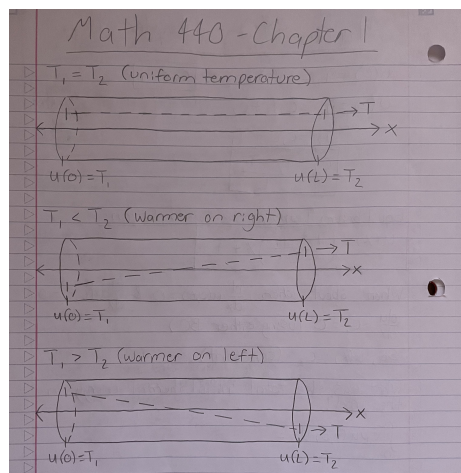 Math 440 - Chapter 1
T₁ = T₂ (uniform temperature)
T
x
u(0) = T₁
u(L) = T₂
T₁ < T₂ (warmer on right)
T
x
u(0) = T₁
u(L) = T₂
T₁ > T₂ (warmer on left)
x
T
u(0) = T₁
u(L) = T₂